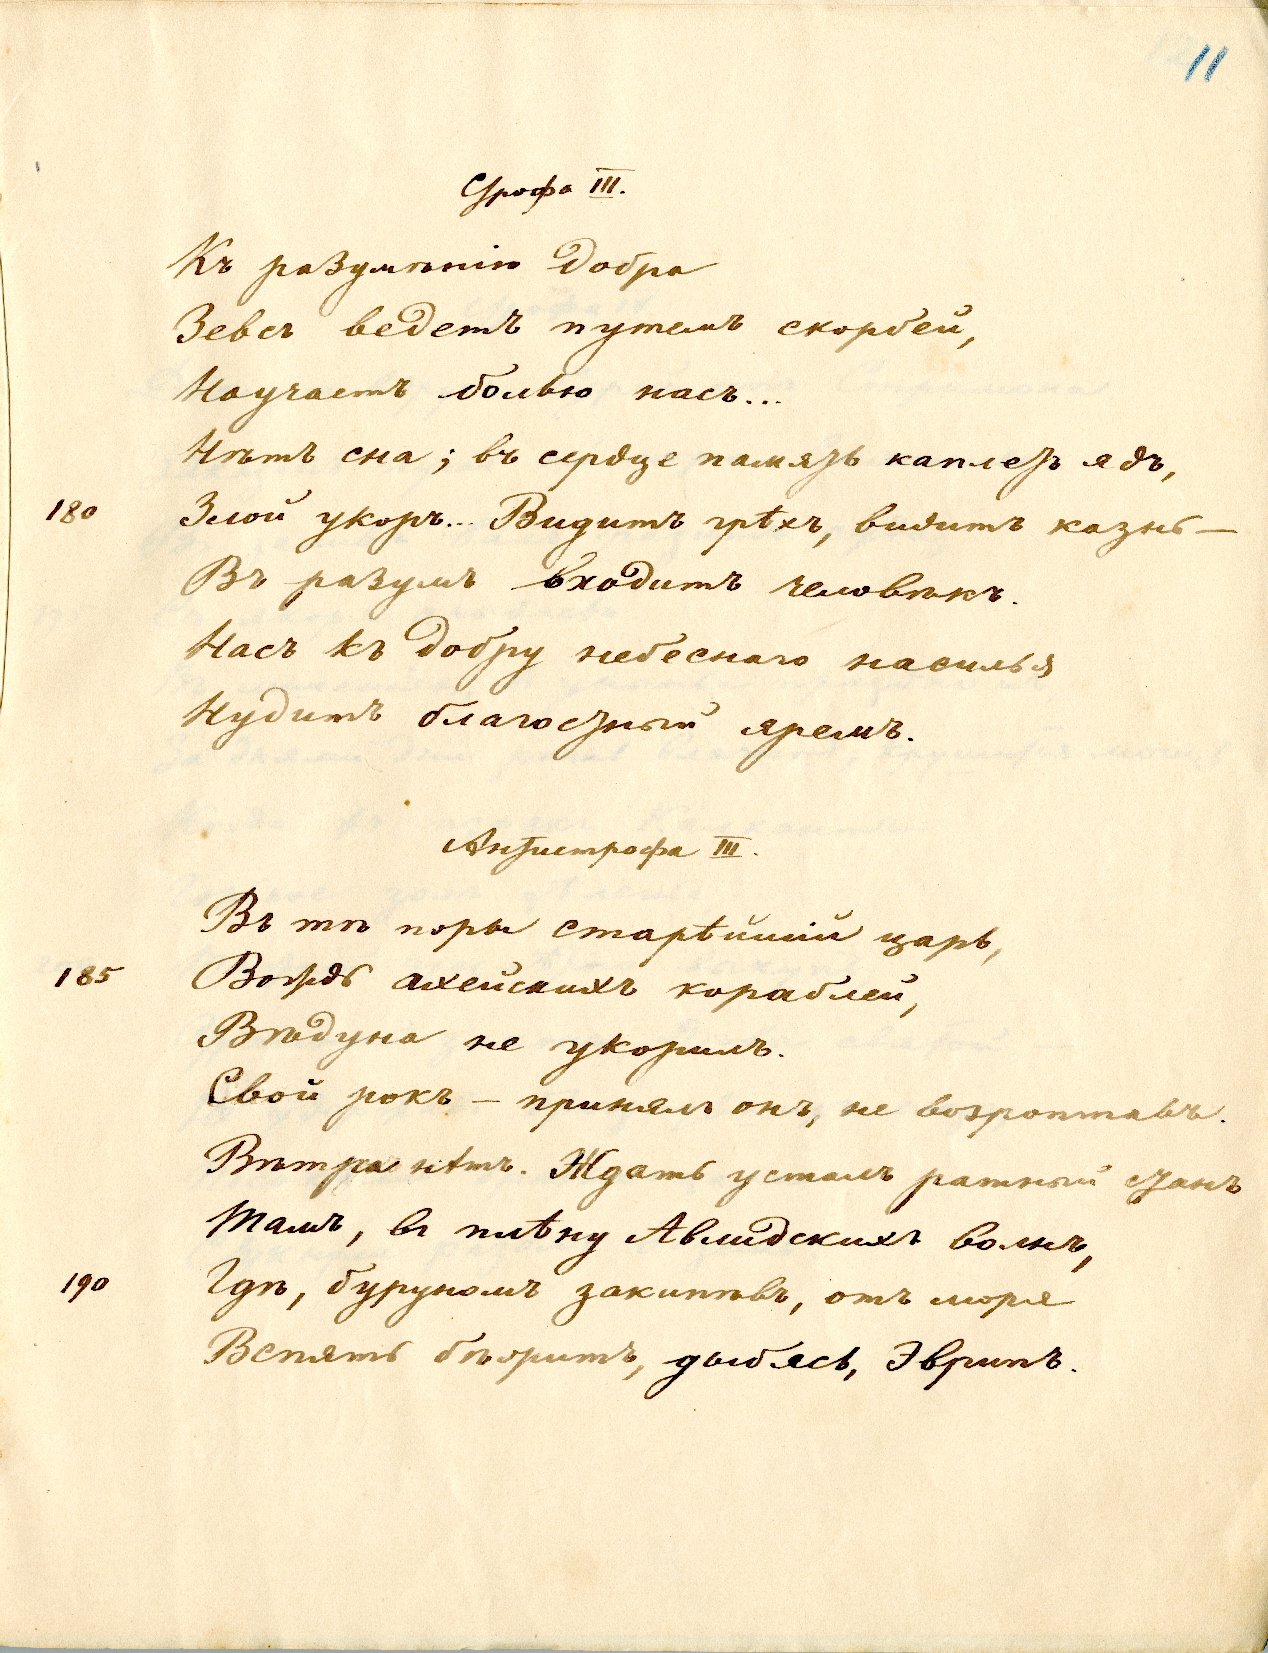 11
Строфа III.
Къ разумѣнію добра
Зевсъ ведетъ путемъ скорбей,
Научаетъ болью насъ...
Нѣтъ сна; въ сердце память каплетъ ядъ,
180 Злой укоръ... Видитъ грѣхъ, видитъ казнь —
Въ разумъ входитъ человѣкъ.
Насъ къ добру небеснаго насилья
Нудитъ благостный яремъ.
Антистрофа III.
Въ тѣ поры старѣйшій царь,
185 Вождь ахейскихъ кораблей,
Вѣдуна не укорилъ.
Свой рокъ — принялъ онъ, не возроптавъ.
Вѣтра нѣтъ. Ждать усталъ ратный станъ
Тамъ, въ плѣну Авлидскихъ волнъ,
190 Гдѣ, буруномъ закипѣвъ, отъ моря
Вспять бѣжитъ, дыбясь, Эврипъ.